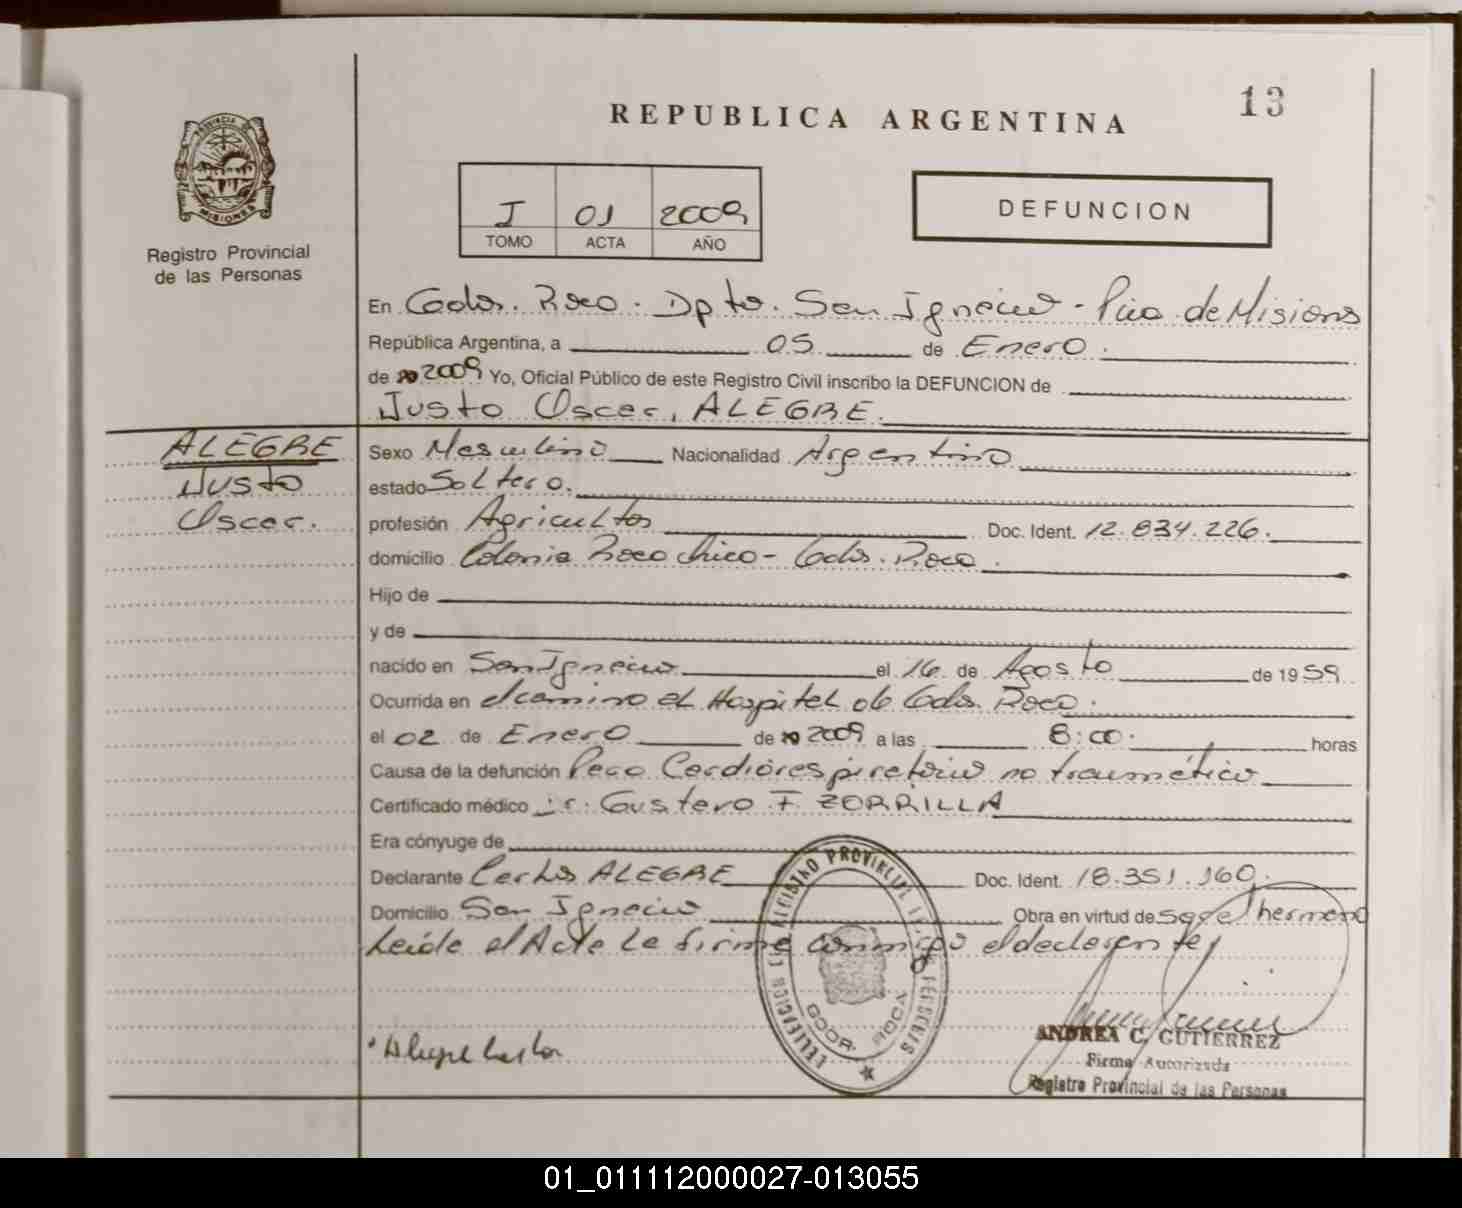 13
REPUBLICA ARGENTINA
PROVINCIA DE
MISIONES
Registro Provincial
de las Personas
I 01 2009
TOMO ACTA AÑO
DEFUNCION
En Gdor. Roca. Dpto. San Ignacio - Pcia de Misiones
República Argentina, a 05 de Enero.
de 2009 Yo, Oficial Público de este Registro Civil inscribo la DEFUNCION de
Justo Oscar, ALEGRE.
ALEGRE
Justo
Oscar.
Sexo Masculino Nacionalidad Argentino
estado Soltero.
profesión Agricultor Doc. Ident. 12.834.226.
domicilio Colonia Roca Chica - Gdor. Roca.
Hijo de
y de
nacido en San Ignacio el 16 de Agosto de 1959
Ocurrida en el camino al Hospital de Gdor. Roca.
el 02 de Enero de 2009 a las 8:00. horas
Causa de la defunción Paro Cardiorespiratorio no traumático
Certificado médico Dr. Gustavo F. ZORRILLA
Era cónyuge de
Declarante Carlos ALEGRE Doc. Ident. 18.351.160.
Domicilio San Ignacio Obra en virtud de ser el hermano
Leída el Acta la firma conmigo el declarante
REGISTRO PROVINCIAL DE LAS PERSONAS
GDOR. ROCA
Alegre Carlos
ANDREA C. GUTIERREZ
Firma Autorizada
Registro Provincial de las Personas
01_011112000027-013055